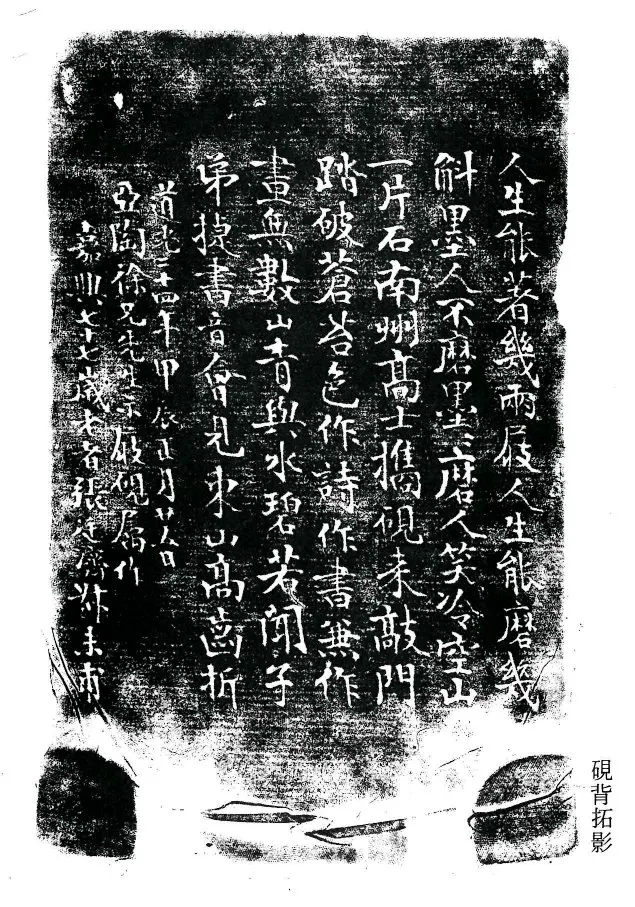 人生能著幾兩屐人生能磨幾
斛墨人不磨墨〻磨人笑冷空山
一片石南州高士攜硯来敲門
踏破蒼苔色作詩作書兼作
畫無數山青與水碧若聞子
弟捷書音會見東山高齒折
道光二十四年甲辰正月廿六日
亞陶徐兄先生示屐硯屬作
嘉興七十七歲老者張廷濟尗未甫
硯背拓影